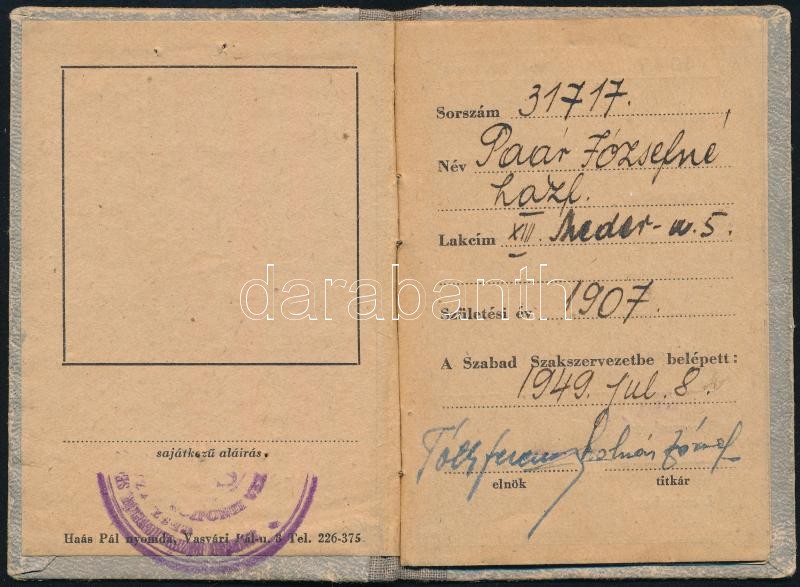 sajátkezű aláírás.
Haás Pál nyomda, Vasvári Pál-u. 3 Tel. 226-375
Sorszám 31717.
Név Paár Józsefné
Lakcím XIII. u. 5.
Születési év 1907.
A Szabad Szakszervezetbe belépett:
1949. jul. 8.
Tóth Ferenc Molnár József
elnök titkár
darabanth